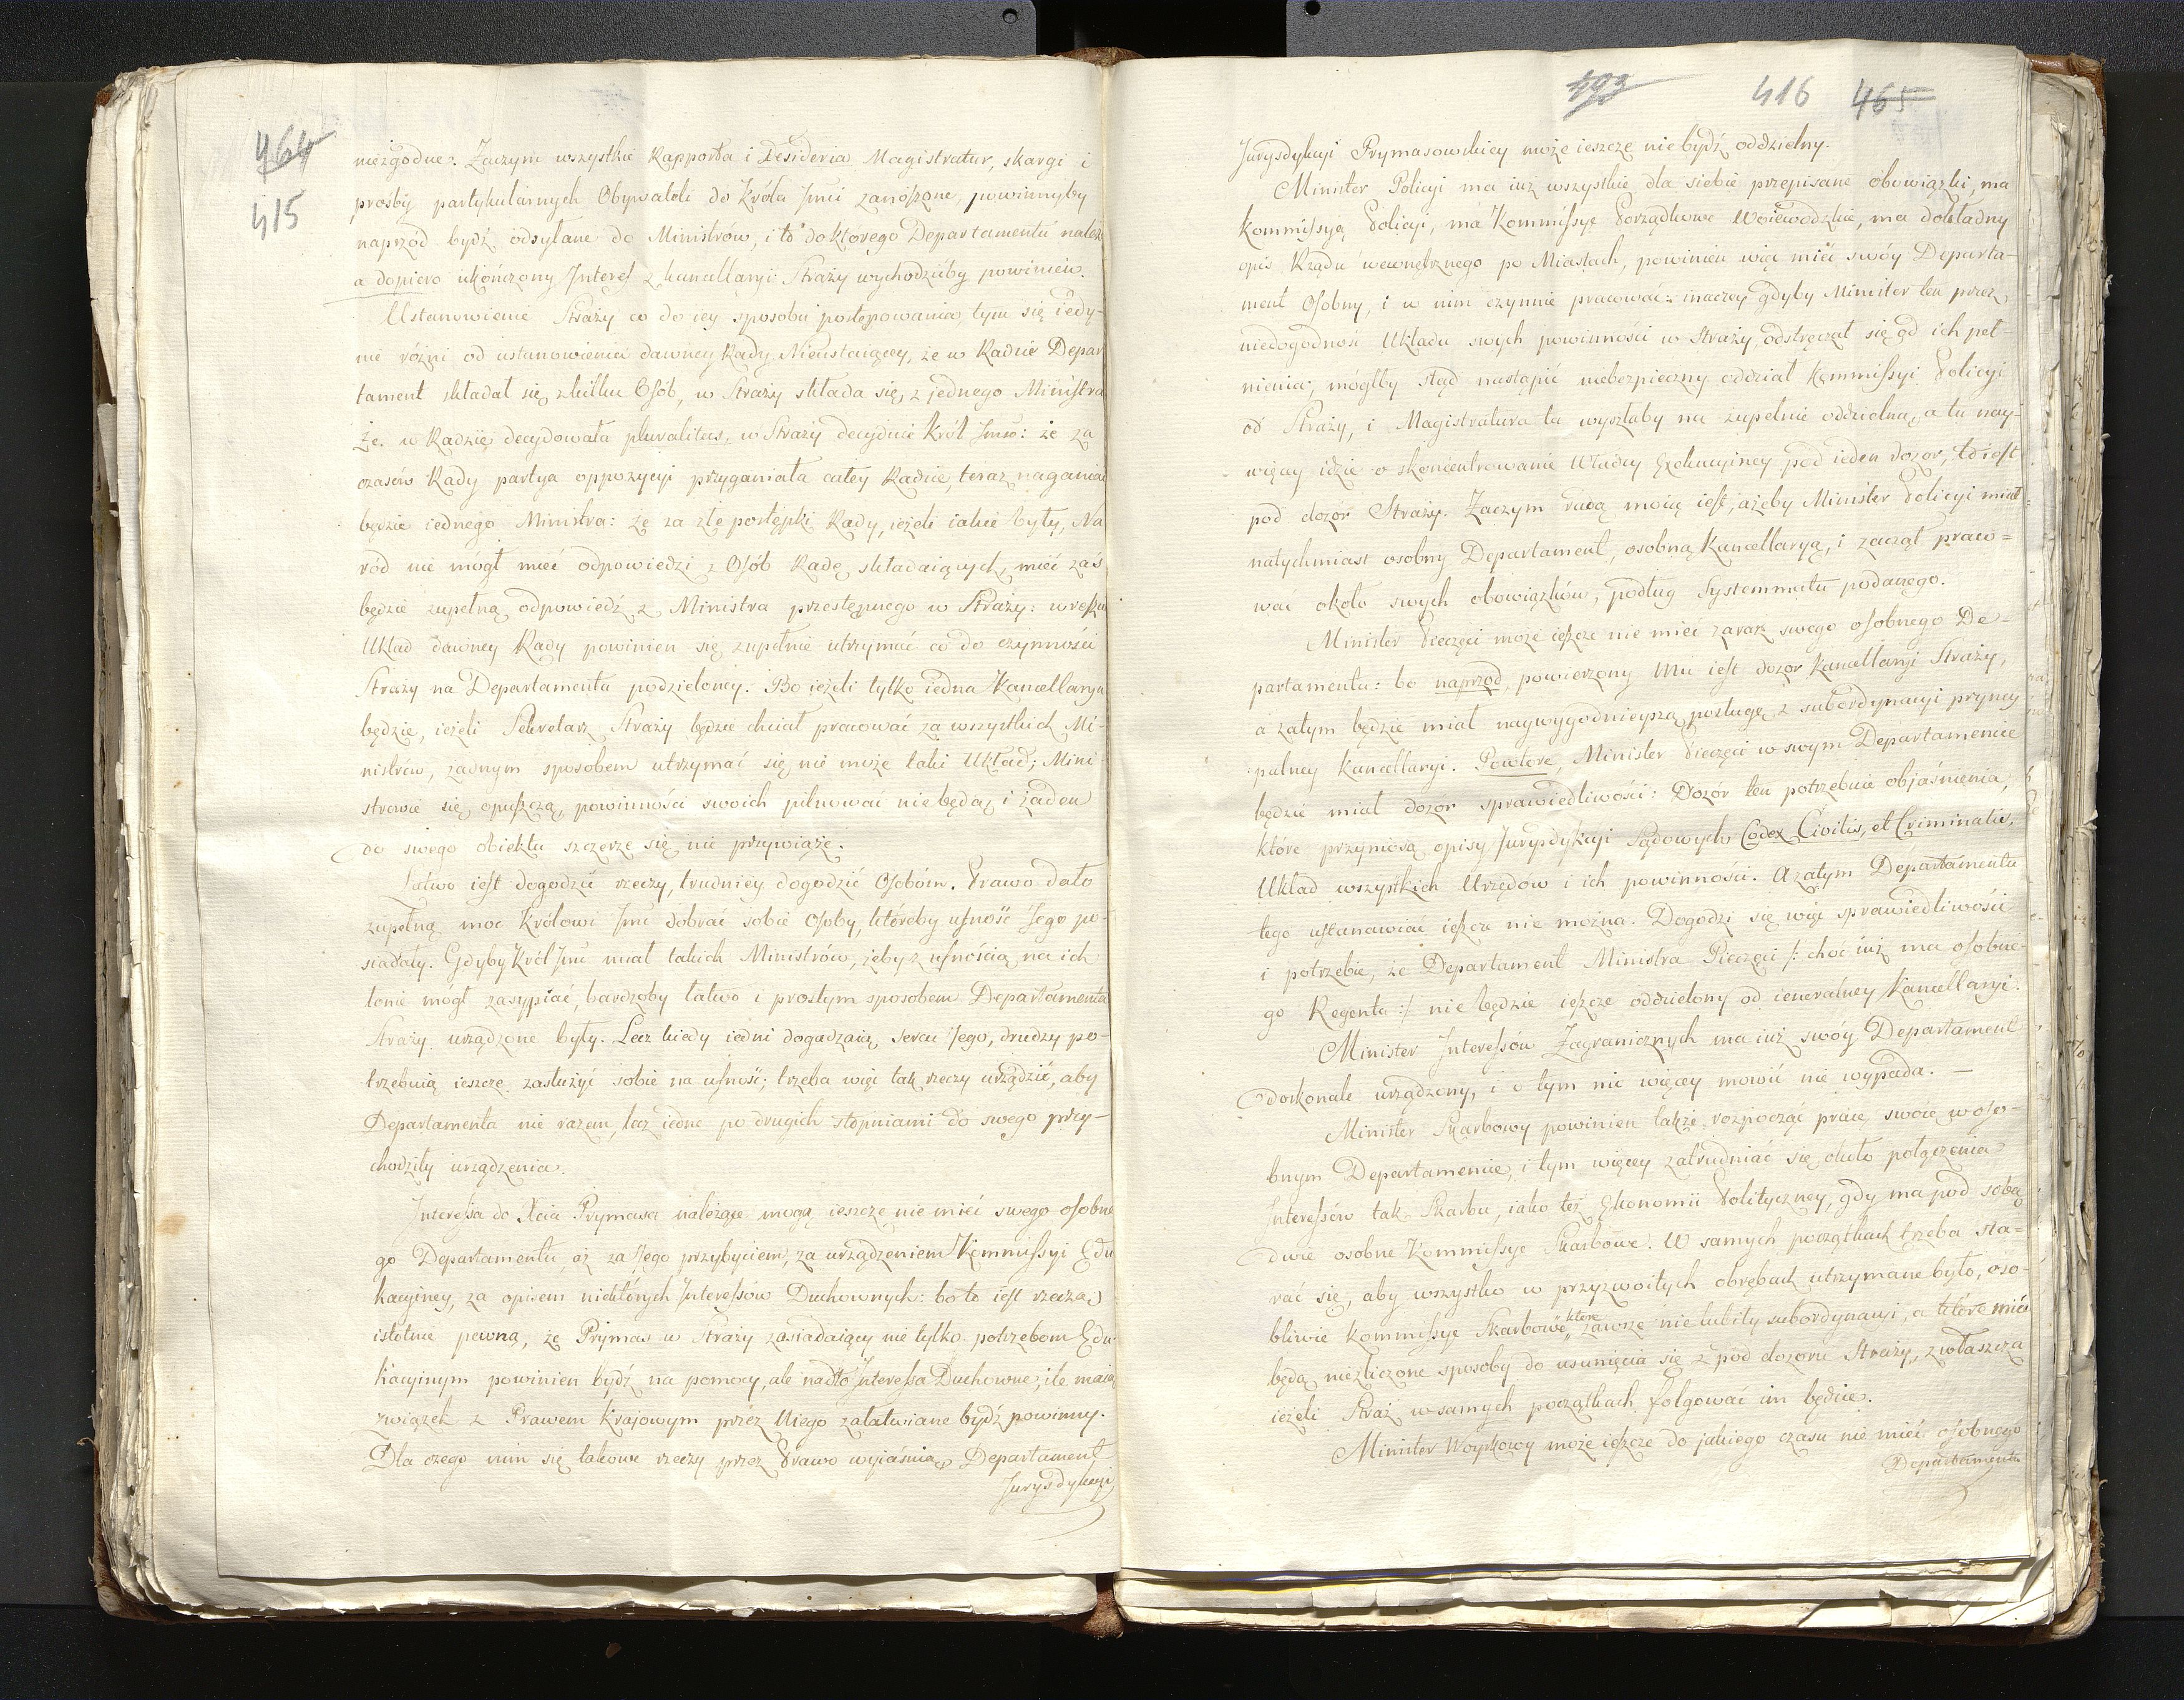 464
415
niezgodne. Zaczym wszystkie Rapporta i Desideria Magistratur, skargi i
prośby partykularnych Obywateli do Króla Jmci zanoszone, powinnyby
naprzód bydź odsyłane do Ministrów, i to do ktorego Departamentu należy
a dopiero ukończony Interes z kancellaryi Straży wychodzićby powinien.
Ustanowienie Straży co do iey sposobu postępowania, tym się iedy-
nie różni od ustanowienia dawney Rady Nieustaiącey, że w Radzie Depar
tament składał się z kilku Osób, w Straży składa się z jednego Ministra
że w Radzie decydowała pluralitas, w Straży decyduie Król Jmć: że za
czasów Rady partya oppozycyi przyganiała całey Radzie, teraz naganiać
będzie iednego Ministra: że za złe postępki Rady, ieżeli iakie były, Na
ród nie mógł mieć odpowiedzi z Osób Radę składaiących, mieć zaś
będzie zupełną odpowiedź z Ministra przestępnego w Straży: w reszcie
Układ dawney Rady powinien się zupełnie utrzymać co do czynności
Straży na Departamenta podzieloney. Bo ieżeli tylko iedna Kancellarya
będzie, ieżeli Sekretarz Straży będzie chciał pracować za wszystkich Mi-
nistrów, żadnym sposobem utrzymać się nie może taki Układ; Mini-
strowie się opuszczą, powinności swoich pilnować nie będą, i żaden
do swego obiektu szczerze się nie przywiąże.
Łatwo iest dogodzić rzeczy, trudniey dogodzić Osobóm. Prawo dało
zupełną moc Królowi Jmci dobrać sobie Osoby, któreby ufność Jego po-
siadały. Gdyby Król Jmć miał takich Ministrów, żeby z ufnością na ich
łonie mógł zasypiać, bardzoby łatwo i prostym sposobem Departamenta
Straży urządzone były. Lecz kiedy iedni dogadzaią sercu Jego, drudzy po-
trzebuią ieszcze zasłużyć sobie na ufność; trzeba więc tak rzeczy urządzić, aby
Departamenta nie razem, lecz iedne po drugich stopniami do swego przy-
chodziły urządzenia.
Interessa do Xcia Prymasa należące mogą ieszcze nie mieć swego osobne
go Departamentu, aż za Jego przybyciem, za urządzeniem Kommissyi Edu
kacyiney, za opisem niektórych Interessów Duchownych: bo to iest rzeczą
istotnie pewną, że Prymas w Straży zasiadaiący nie tylko potrzebom Edu-
kacyinym powinien bydź na pomocy, ale nadto Interessa Duchowne, ile maią
związek z Prawem Krajowym przez Niego załatwiane bydź powinny.
Dla czego nim się takowe rzeczy przez Prawo wyjaśnią, Departament
Jurysdykcyi
493
416 465
Jurysdykcyi Prymasowskiey może ieszcze nie bydź oddzielny.
Minister Policyi ma iuż wszystkie dla siebie przepisane obowiązki, ma
Kommissyą Policyi, ma Kommissye Porządkowe Woiewodzkie, ma dokładny
opis Rządu wewnętrznego po Miastach, powinien więc mieć swóy Departa-
ment Osobny, i w nim czynnie pracować: inaczey gdyby Minister ten przez
niedogodność Układu swych powinności w Straży, odstręczał się od ich peł-
nienia, mógłby stąd nastąpić niebezpieczny oddział Kommissyi Policyi
od Straży, i Magistratura ta wyszłaby na zupełnie oddzielną, a tu nay-
więcey idzie o skoncentrowanie Władzy Exekucyiney pod ieden dozor, to iest
pod dozór Straży. Zaczym radą moią iest, ażeby Minister Policyi miał
natychmiast osobny Departament, osobną Kancellaryą, i zaczął praco=
wać około swych obowiązków, podług Systemmatu podanego.
Minister Pieczęci może ieszcze nie mieć zaraz swego osobnego De-
partamentu: bo naprzod, powierzony Mu iest dozor Kancellaryi Straży,
a zatym będzie miał naywygodnieyszą posługę z subordynacyi pryncy
palney Kancellaryi. Powtore, Minister Pieczęci w swym Departamencie
będzie miał dozór sprawiedliwości: Dozor ten potrzebuie objaśnienia,
które przyniosą opisy Jurysdykcyi Sądowych Codex Civilis, et Criminalis,
Układ wszystkich Urzędów i ich powinności. A zatym Departamentu
tego ustanawiać ieszcze nie można. Dogodzi się więc sprawiedliwości
i potrzebie, że Departament Ministra Pieczęci /: choć iuż ma osobne-
go Regenta :/ nie będzie ieszcze oddzielony od ieneralney Kancellaryi.
Minister Interessów Zagranicznych ma iuż swóy Departament
doskonale urządzony, i o tym nic więcey mowić nie wypada. —
Minister Skarbowy powinien także rozpocząć pracę swoię w oso-
bnym Departamencie, i tym więcey zatrudniać się około połączenia
Interessów tak Skarbu, iako też Ekonomii Polityczney, gdy ma pod sobą
dwie osobne Kommissye Skarbowe. W samych początkach trzeba sta=
rać się, aby wszystko w przyzwoitych obrębach utrzymane było, oso-
bliwie Kommissye Skarbowe, które zawsze nie lubiły subordynacyi, a które mieć
będą niezliczone sposoby do usunięcia się z pod dozoru Straży, zwłaszcza
ieżeli Straż w samych początkach folgować im będzie.
Minister Woyskowy może ieszcze do jakiego czasu nie mieć osobnego
Departamentu